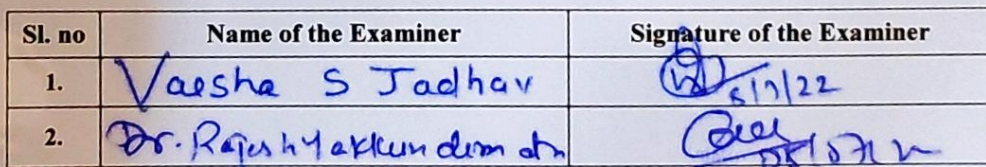 Sl. no Name of the Examiner Signature of the Examiner
1. Varsha S Jadhav 5/7/22
2. Dr. Rajesh Yakkundimath